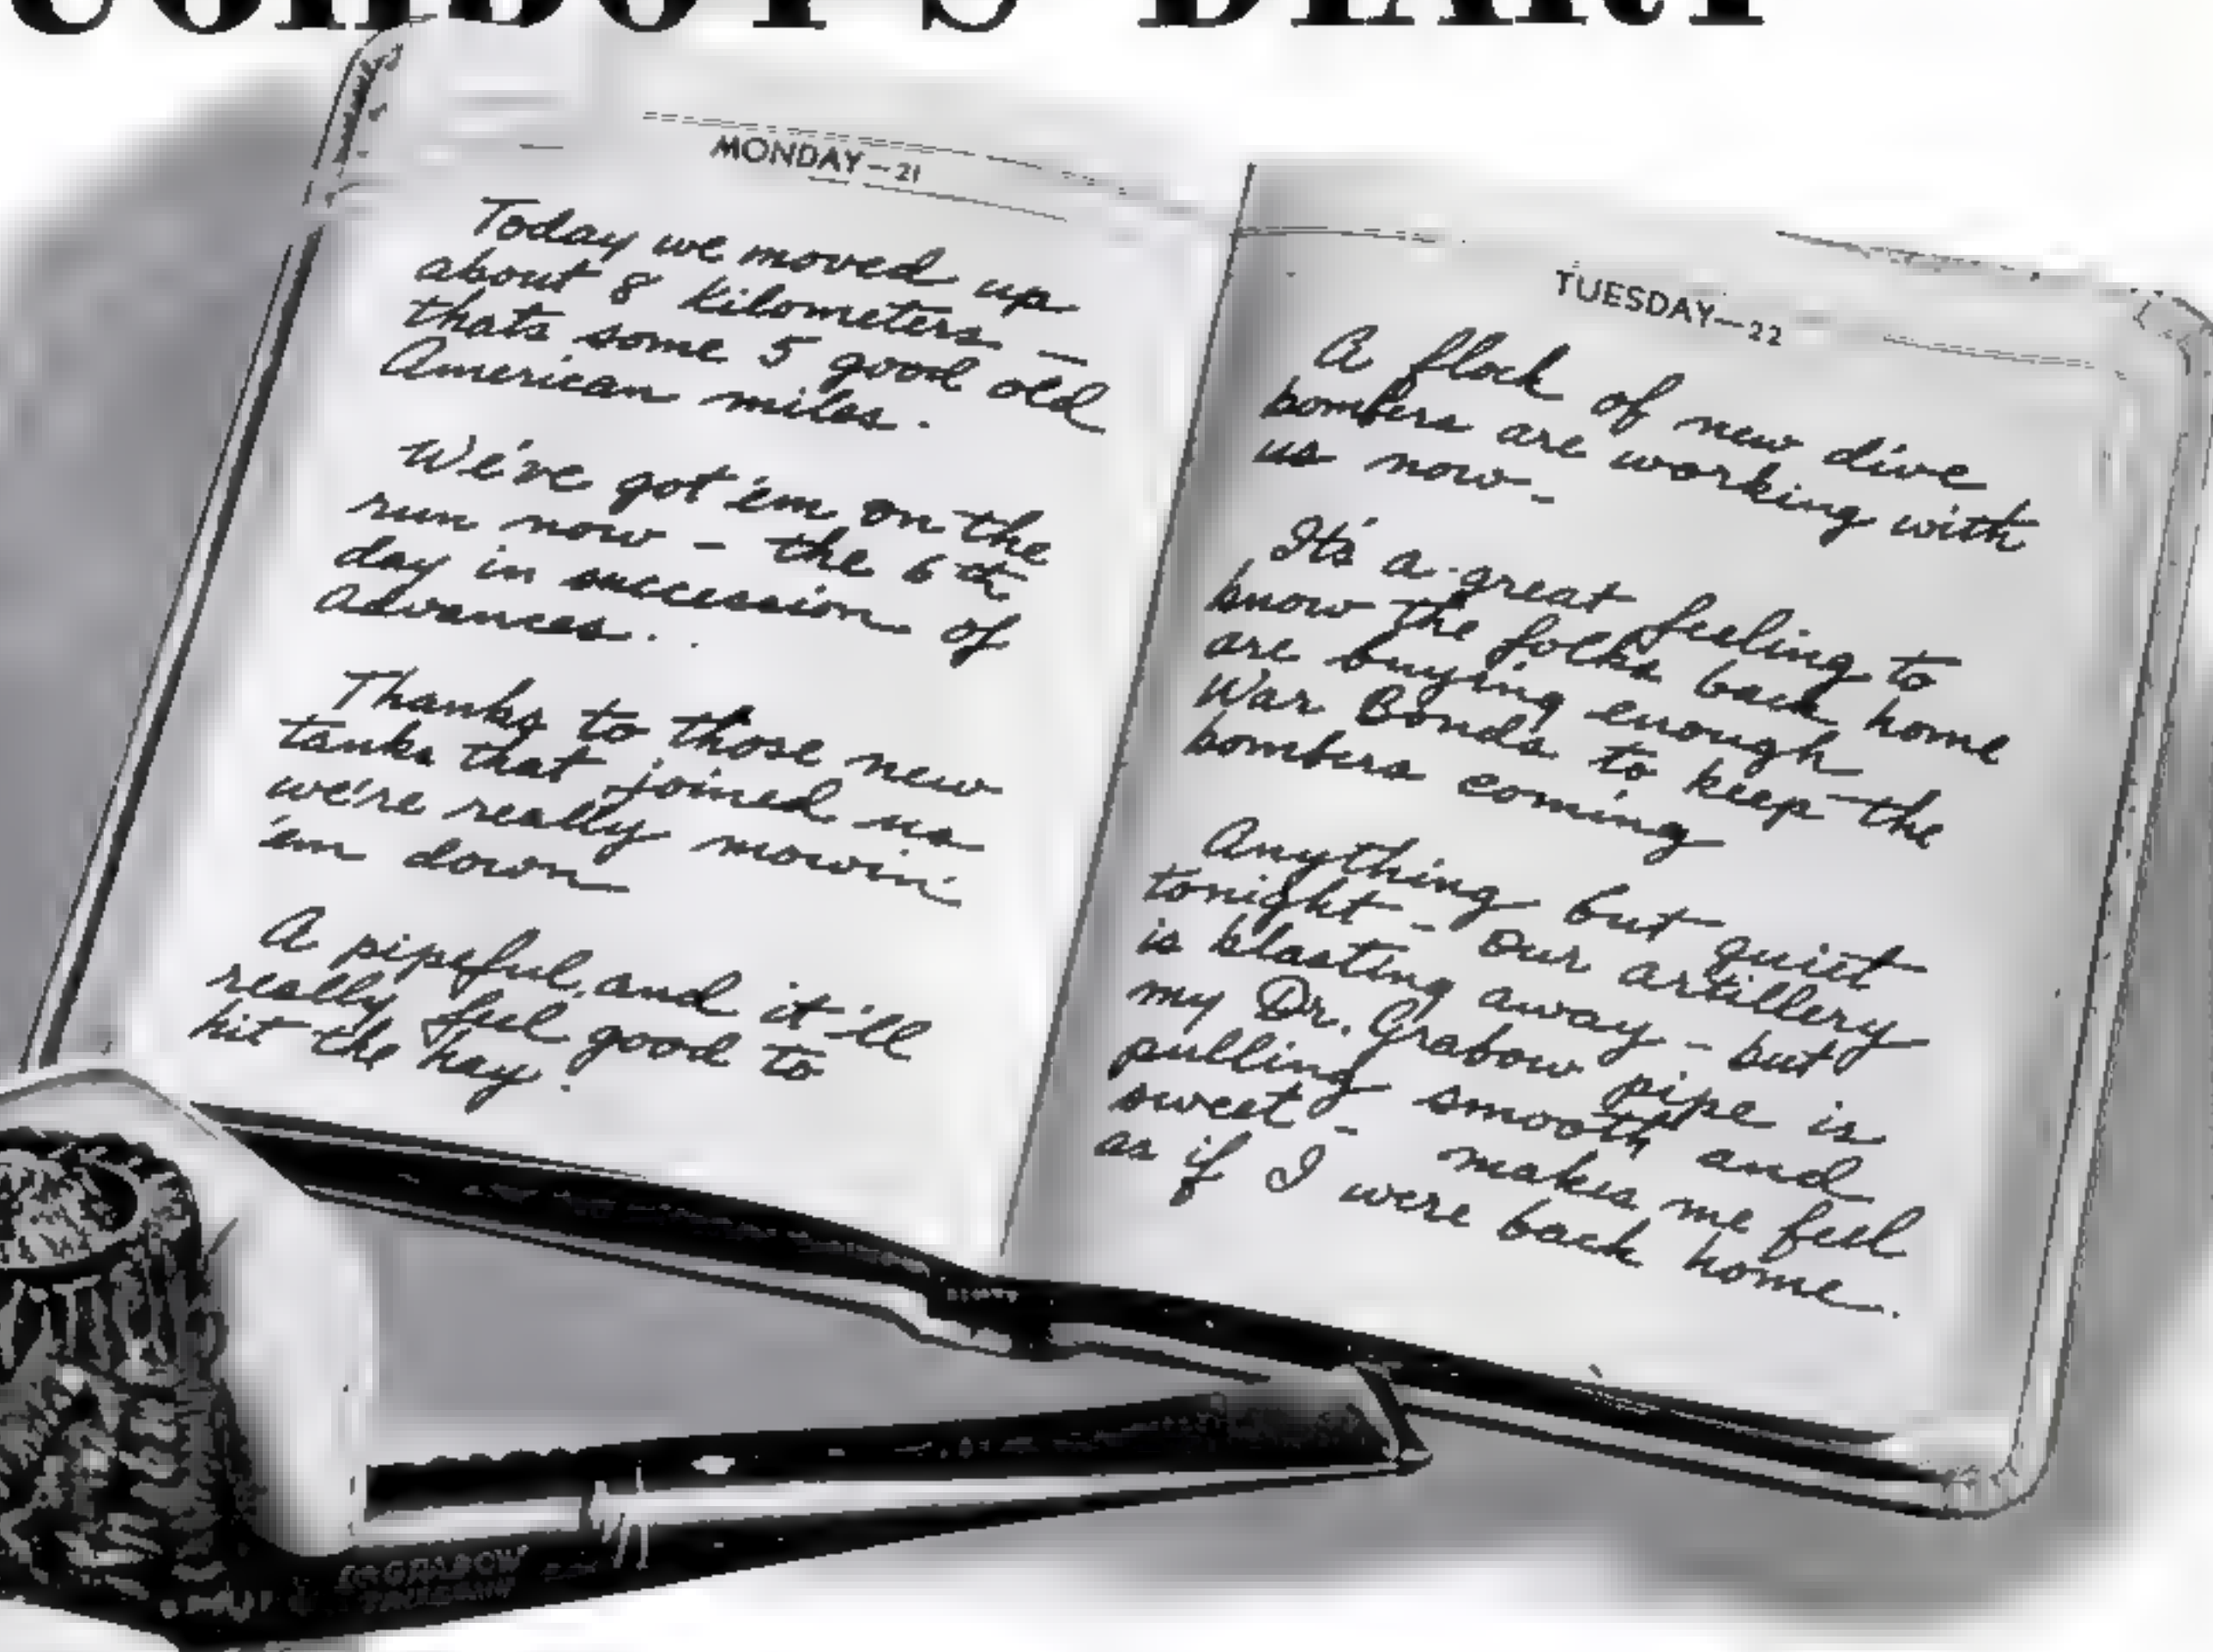 DIARY
MONDAY-21
Today we moved up
about 8 kilometers —
thats some 5 good old
American miles.
We've got 'em on the
run now - the 6th
day in succession of
advances..
Thanks to those new
tanks that joined us
we're really mowin'
'em down
A pipeful, and it'll
really feel good to
hit the hay.
TUESDAY-22
A flock of new dive
bombers are working with
us now-
It's a great feeling to
know the folks back home
are buying enough
War Bonds to keep the
bombers coming
Anything but quiet
tonight - our artillery
is blasting away - but
my Dr. Grabow pipe is
pulling smooth and
sweet - makes me feel
as if I were back home.
GRABOW